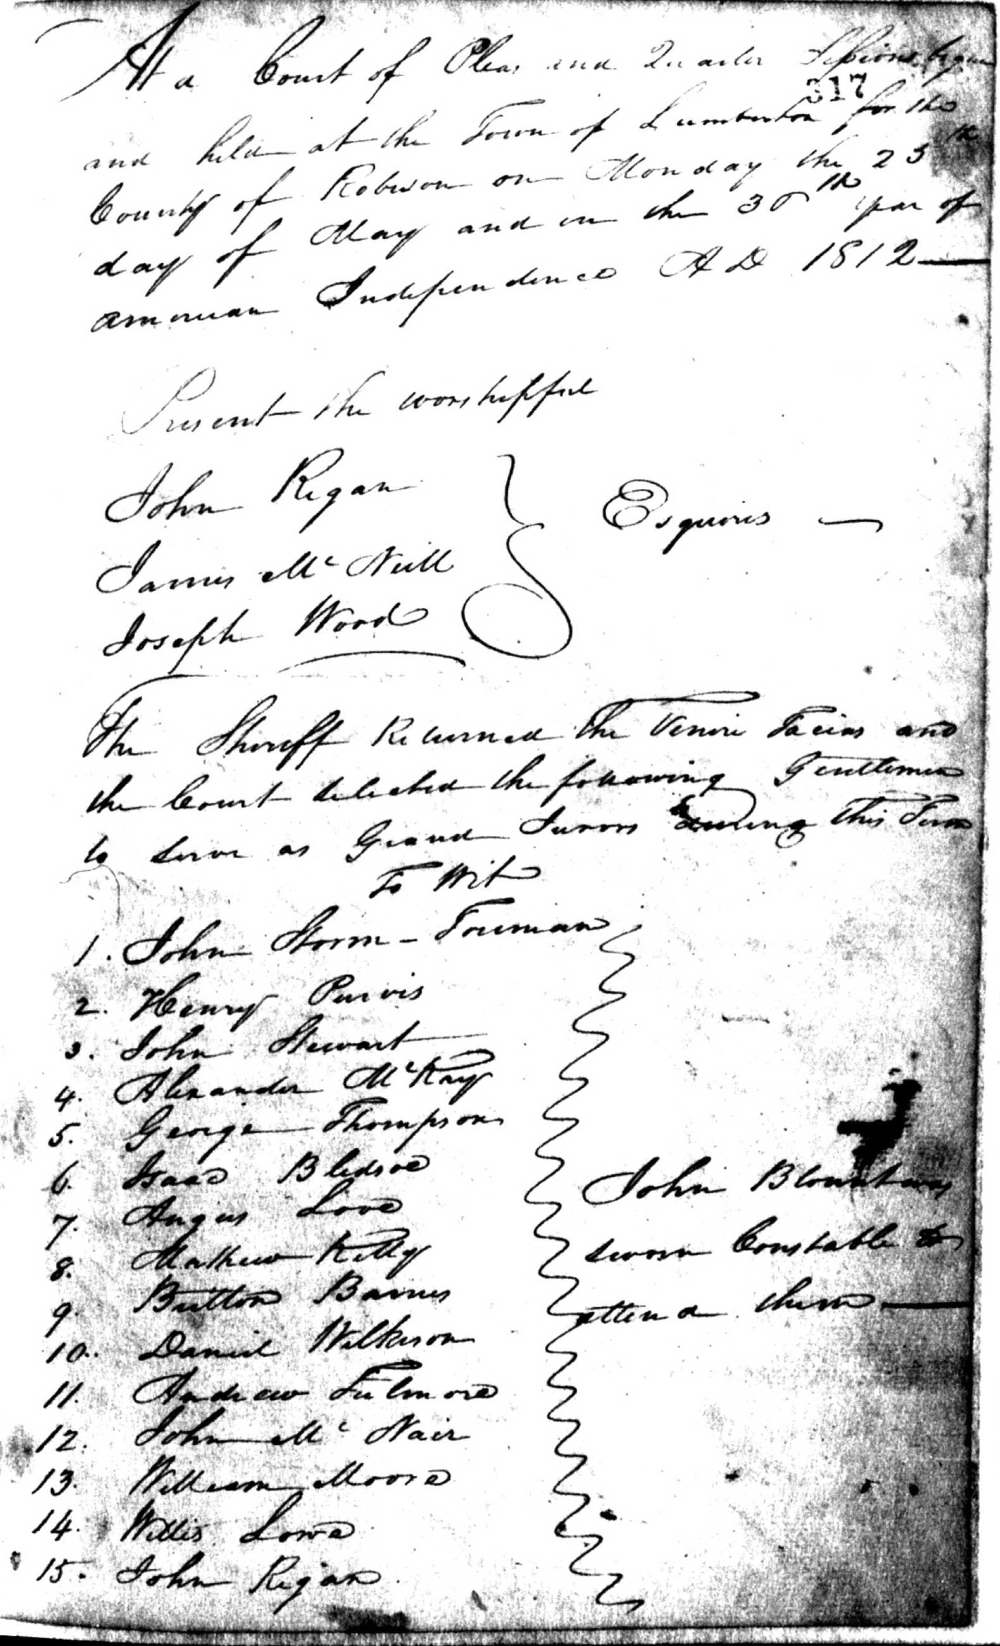 At a Court of Pleas and Quarter Sessions begun
317
and held at the Town of Lumberton for the
County of Robeson on Monday the 25th
day of May and in the 36th year of
American Independence A D 1812
Present the worshipful
John Regan
James Mc Neill
Joseph Wood
Esquires
The Sheriff Returned the Venire Facias and
the Court selected the following Gentlemen
to serve as Grand Jurors during this Term
To Wit
1. John Storm - Foreman
2. Henry Purvis
3. John Stewart
4. Alexander McKay
5. George Thompson
6. Isaac Bledsoe
7. Angus Love
8. Mathew Kelly
9. Britton Barnes
10. Daniel Wilkeson
11. Andrew Fulmore
12. John Mc Nair
13. William Moore
14. Willis Lowe
15. John Regan
John Blount was
sworn Constable to
attend them